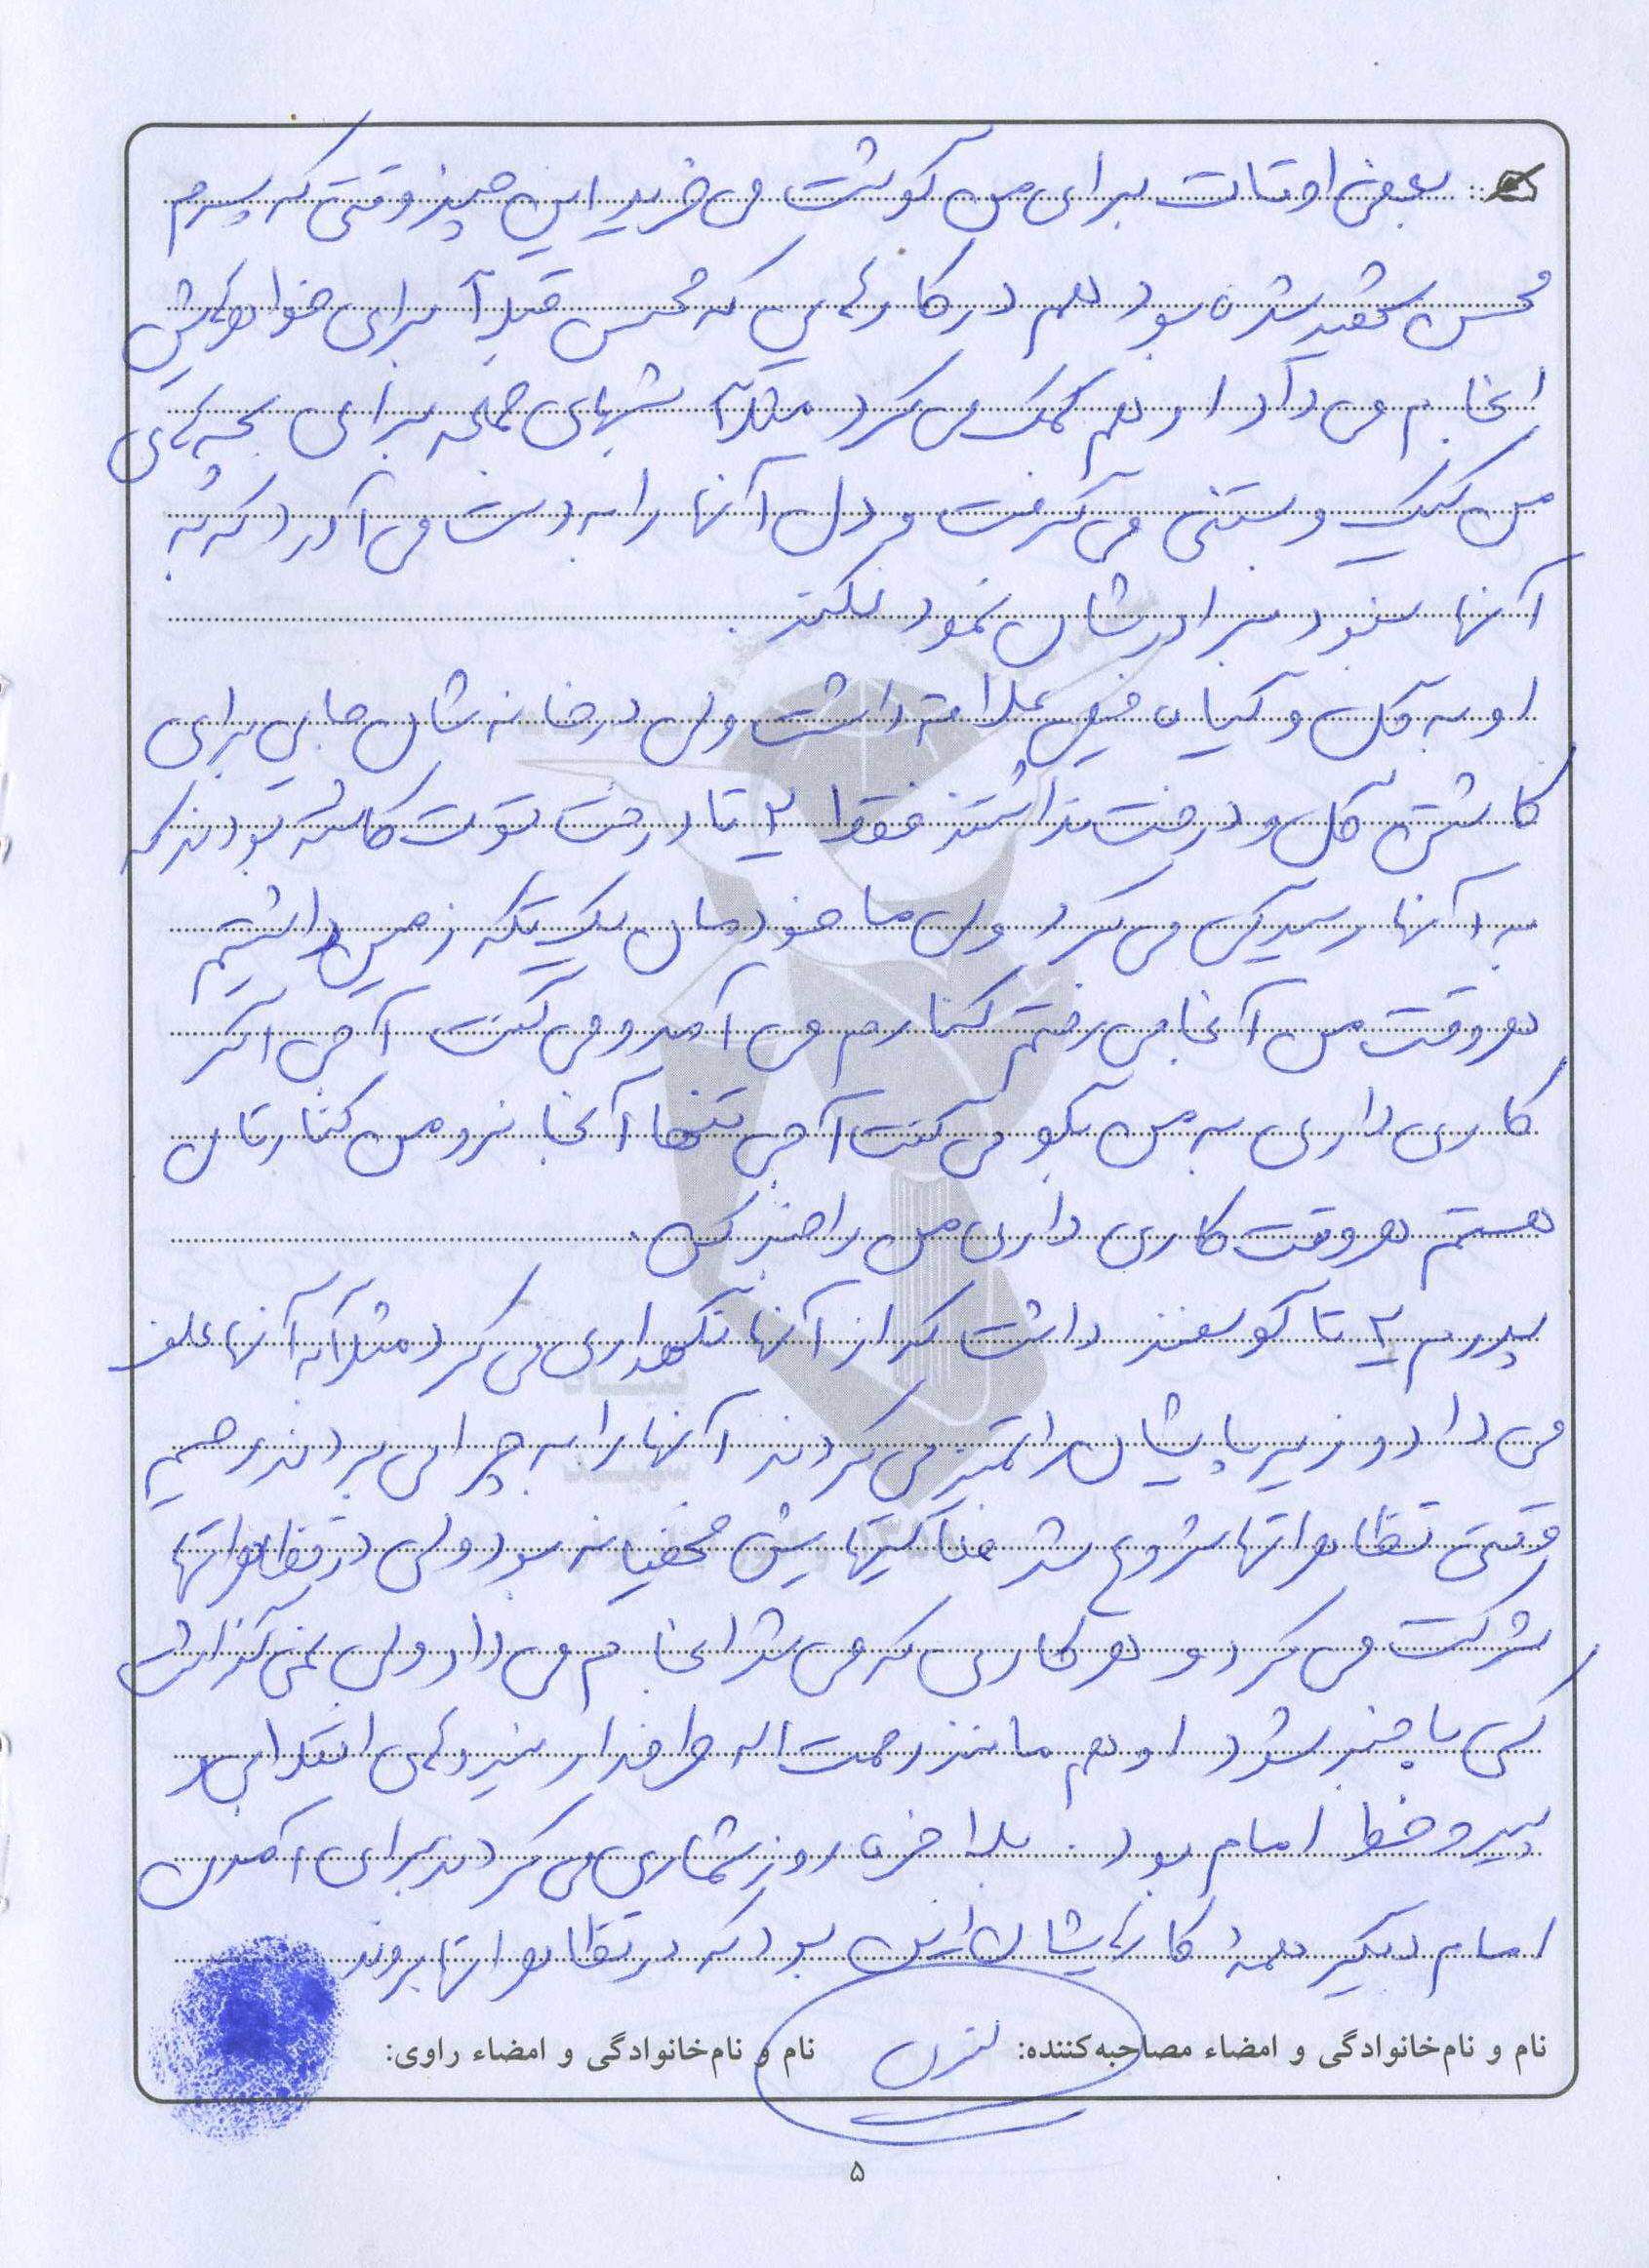 بعضی اوقات برای من گوشت می خرید این چیز وقتی که پسرم
محسن شهید شده بود هم در کارهایی که محسن قبلاً برای خواهرهایش
انجام می داد او هم کمک می کرد مثلاً شبهای جمعه برای بچه های
من کیک و بستنی می گرفت و دل آنها را به دست می آورد که به
آنها نبود برادرشان نمود نکند.
او به گل و گیاه خیلی علاقه داشت ولی در خانه شان جایی برای
کاشتن گل و درخت نداشتند فقط ۲ تا درخت توت کاشته بودند که
به آنها رسیدگی می کرد ولی ما خودمان یک تکه زمین داشتیم
هر وقت من آنجا می رفتم کنارم می آمد و می گفت آجی اگر
کاری داری به من بگو می گفت آجی تنها آنجا نرو من کنارتان
هستم هر وقت کاری داری من را خبر کن.
پدرم ۲ تا گوسفند داشت که از آنها نگهداری می کرد مثلاً به آنها علف
می داد و زیر پایشان را تمیز می کردند آنها را به چرا می بردند رحیم
وقتی تظاهراتها شروع شد فعالیتهایش مخفیانه بود ولی در تظاهراتها
شرکت می کرد و هر کاری که می شد انجام می داد ولی نمی گذاشت
کسی باخبر شود او هم مانند رحمت اله طرفدار نیروهای انقلابی و
پیرو خط امام بود. بلاخره روزشماری می کردند برای آمدن
امام دیگر همهٔ کارهایشان این بود که در تظاهراتها بروند
نام و نام‌خانوادگی و امضاء مصاحبه‌کننده: نام و نام‌خانوادگی و امضاء راوی:
۵